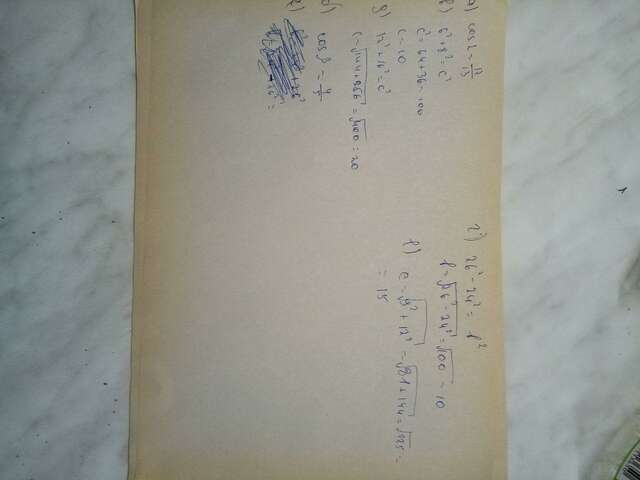 а) cos α = 12/13
в) 6² + 8² = c²
c² = 64 + 36 = 100
c = 10
д) 12² + 16² = c²
c = √144+256 = √400 = 20
б) cos β = 4/5
г) 26² - 24² = b²
b = √26² - 24² = √100 = 10
е) c = √9² + 12² = √81 + 144 = √225 =
= 15